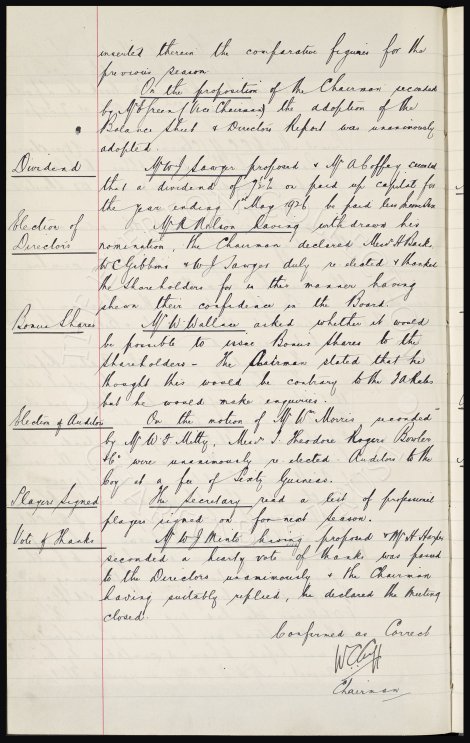 inserted therein the comparative figures for the
previous season.
On the proposition of the Chairman seconded
by Mr Green (Vice Chairman) the adoption of the
Balance Sheet & Directors Report was unanimously
adopted.
Dividend Mr W J Sawyer proposed & Mr A Coffey seconded
that a dividend of on paid up capital for
the year ending 1st May 1926 be paid less Income Tax
Election of Mr R Wilson having withdrawn his
Directors nomination, the Chairman declared Messrs
W C Gibbins & W J Sawyer duly re elected & thanked
the Shareholders for in this manner having
shewn their confidence in the Board.
Bonus Shares Mr W. Wallace asked whether it would
be possible to issue Bonus Shares to the
Shareholders - The Chairman stated that he
thought this would be contrary to the F A Rules
but he would make enquiries.
Election of Auditors On the motion of Mr Wm Morris, seconded
by Mr W F Messrs T. Theodore Rogers Bowler
& Co were unanimously re elected Auditors to the
Coy at a fee of Sixty Guineas.
Players Signed The Secretary read a list of professional
players signed on for next season.
Vote of Thanks Mr W J having proposed & Mr H
seconded a hearty vote of thanks was passed
to the Directors unanimously & the Chairman
having suitably replied, he declared the Meeting
closed.
Confirmed as Correct
W C Cuff
Chairman